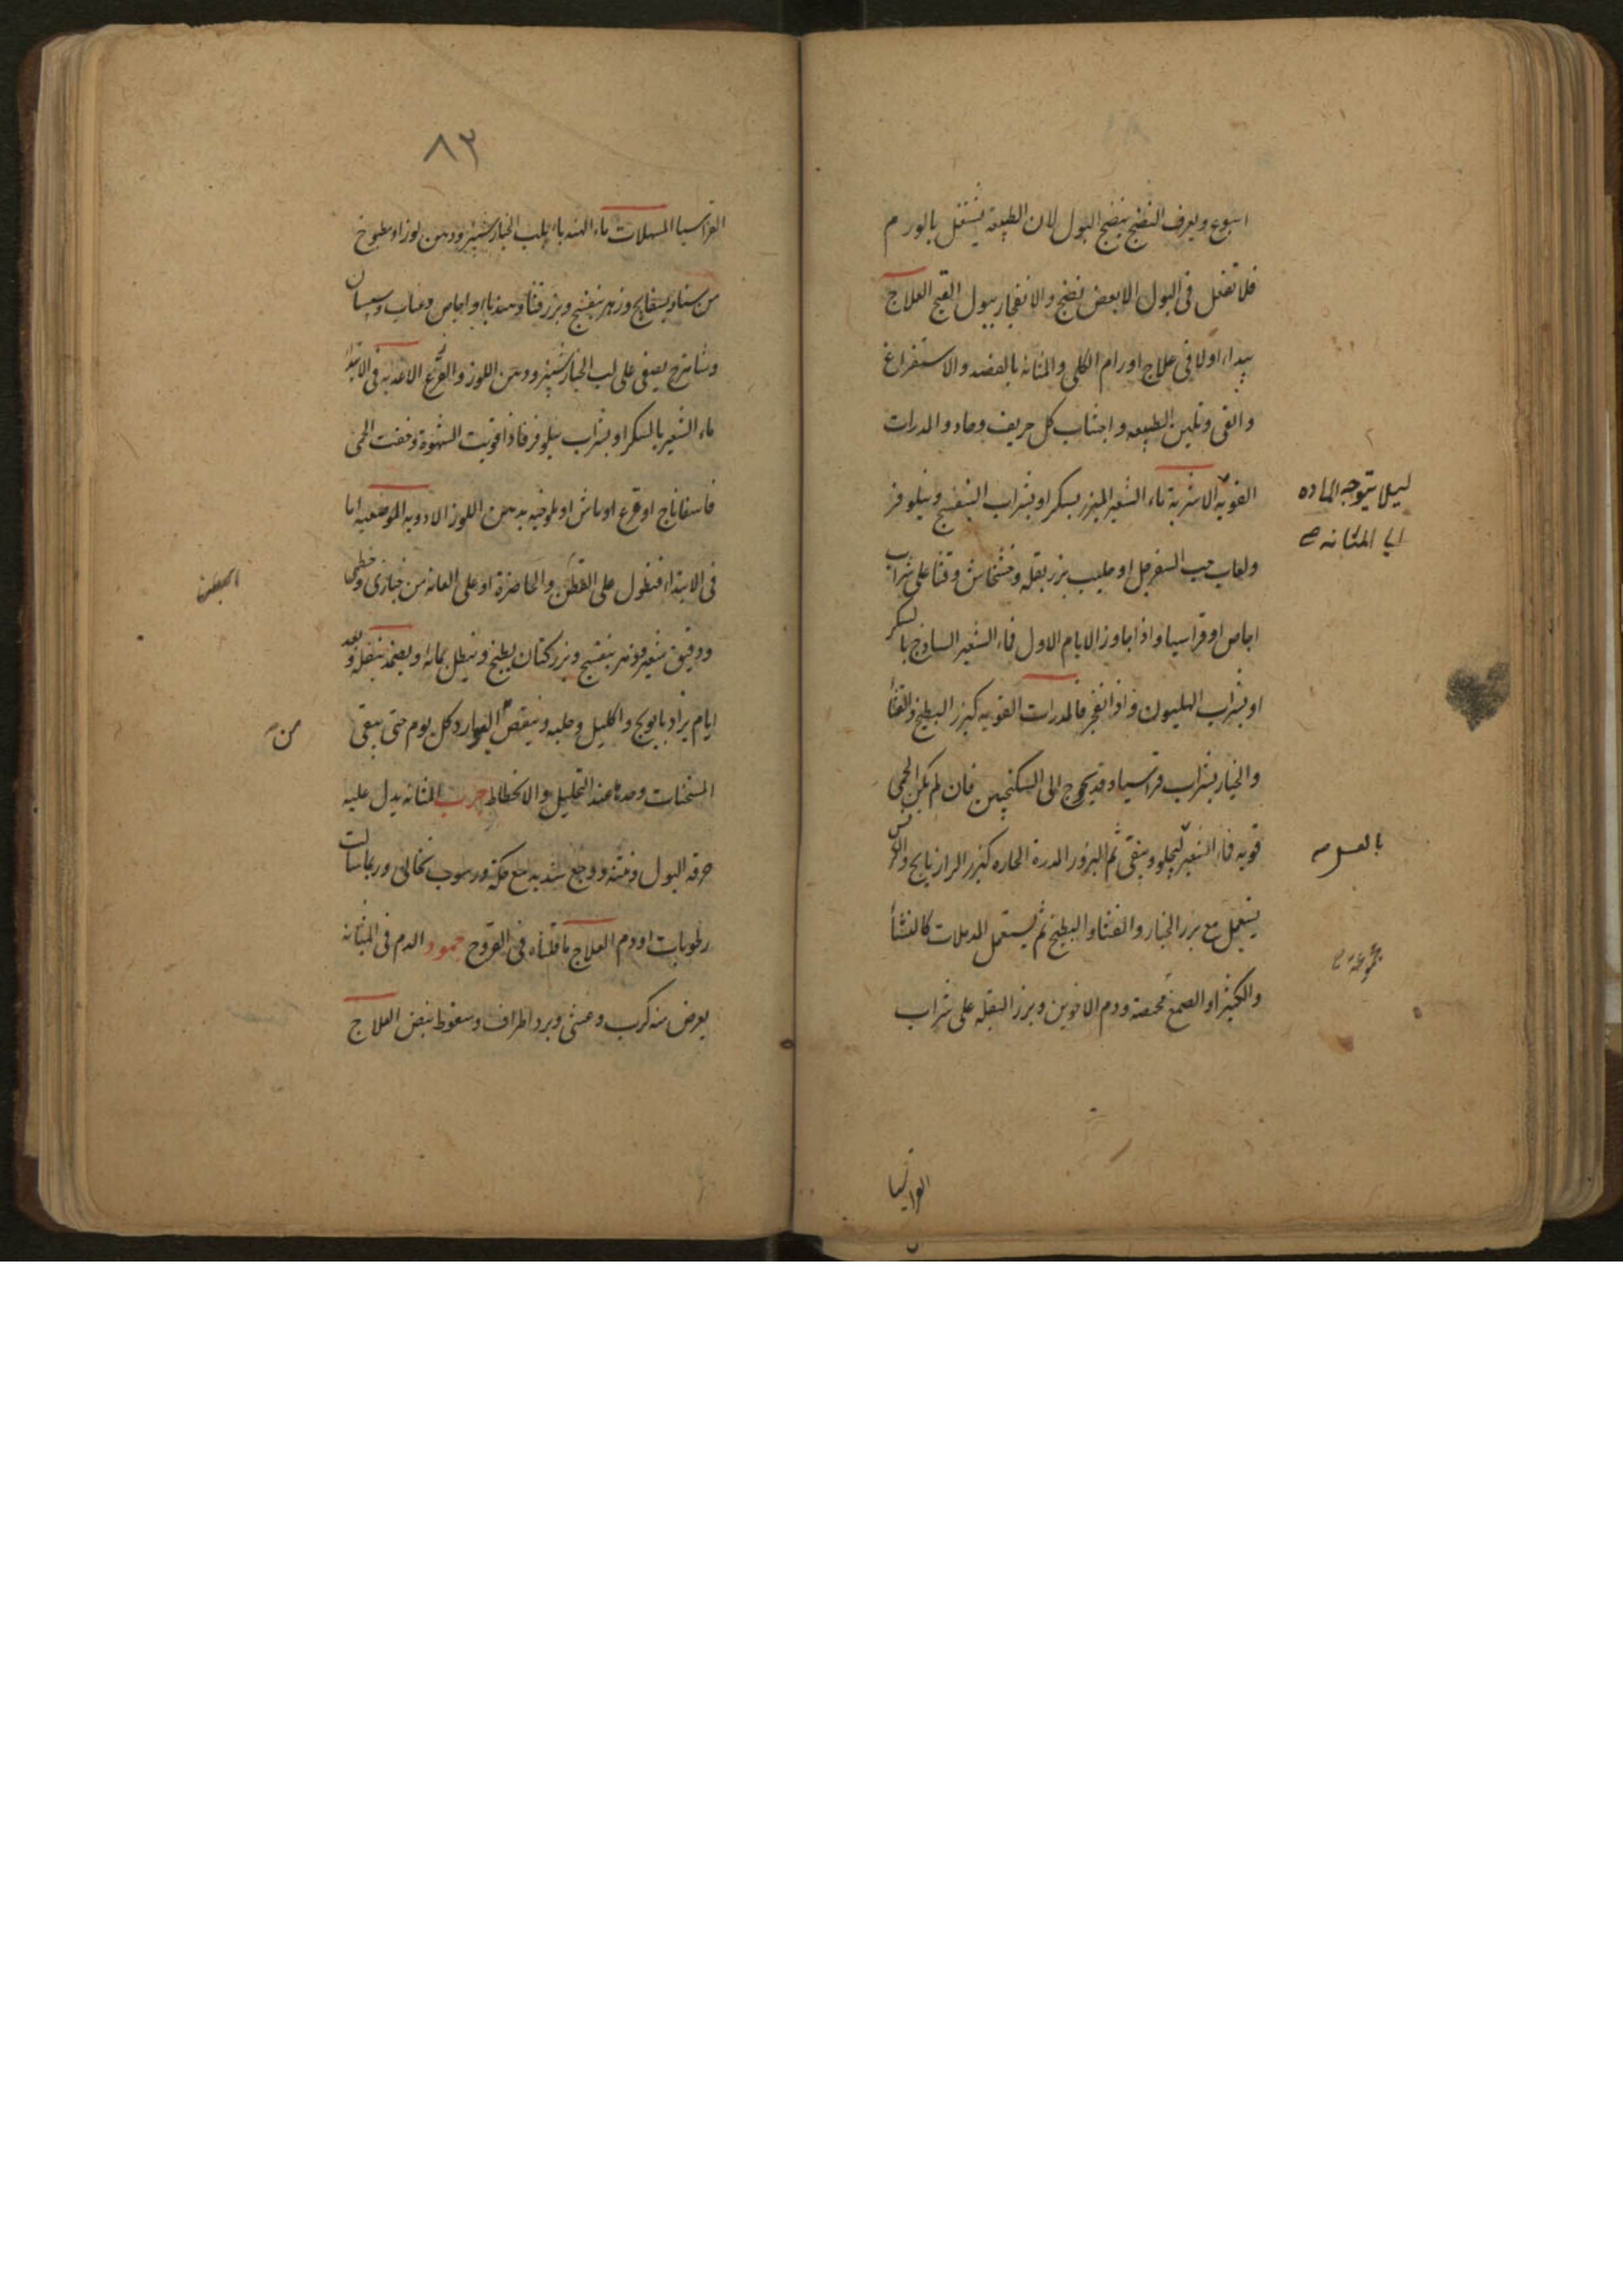 اسبوع ويعرف النضج بنضج البول لان الطبيعة يشتغل بالورم
فلا تفعل فى البول الا بعض نضج والانفجار ببول القيح العلاج
يبداء اولا فى علاج اورام الكلى والمثانه بالفصد والاستفراغ
والقى وتليين الطبيعه واجتناب كل حريف وحاد والمدرات
القويه الاشربة ماء الشعير المبزر بسكر او بشراب البنفسج ونيلوفر
ليلا يتوجه الماده
الى المثانه صح
ولعاب حب السفرجل او حليب بزر بقله وخشخاش وقثا على شراب
اجاص او قراسيا واذا جاوز الايام الاول فماء الشعير الساذج بالسكر
او بشراب الهليون واذا انفجر فالمدرات القويه كبزر البطيخ والقثا
والخيار بشراب قراسيا وقد يحوج الى السكنجبين فان لم يكن الحمى
قويه فماء الشعير ليجلو وينقى ثم البزور المدرة الحاره كبزر الرازيانج والكرفس
بالعسل صح
يستعمل مع بزر الخيار والقثا والبطيخ ثم يستعمل المدملات كالنشا
والكثيرا والصمغ محمصة ودم الاخوين وبزر البقله على شراب
القراسيا
٨٣
القراسيا المسهلات ماء الهندباء بلب الخيار شنبر ودهن لوز او مطبوخ
من سنا وبسفايج وزهر بنفسج وبزر قثا وهندباء واجاص وعناب وسبستان
وشاهترج يصفى على لب الخيار شنبر ودهن اللوز والقرع الاغذيه فى الابتدا
ماء الشعير بالسكر او بشراب نيلوفر فاذا قويت الشهوة وخفت الحمى
فاسفاناج او قرع او ماش او ملوخيه بدهن اللوز الادويه الموضعيه اما
فى الابتداء فنطول على القطن والخاصرة او على العانه من خبازى وخطمى
ودقيق شعير وزهر بنفسج وبزر كتان يطبخ وينطل بمائه او يضمد بثقله وبعد
ايام يزاد بابونج واكليل وحلبه وينقص البوارد كل يوم حتى يبقى
من صح
المسخنات وحدها عند التحليل والانحطاط جرب المثانه يدل عليه
حرقه البول ونتنه ووجع شديد مع حكة ورسوب نخالى وربما سالت
رطوبات او دم العلاج ما قلناه فى القروح جمود الدم فى المثانه
يعرض منه كرب وغشى وبرد اطراف وسقوط نبض العلاج